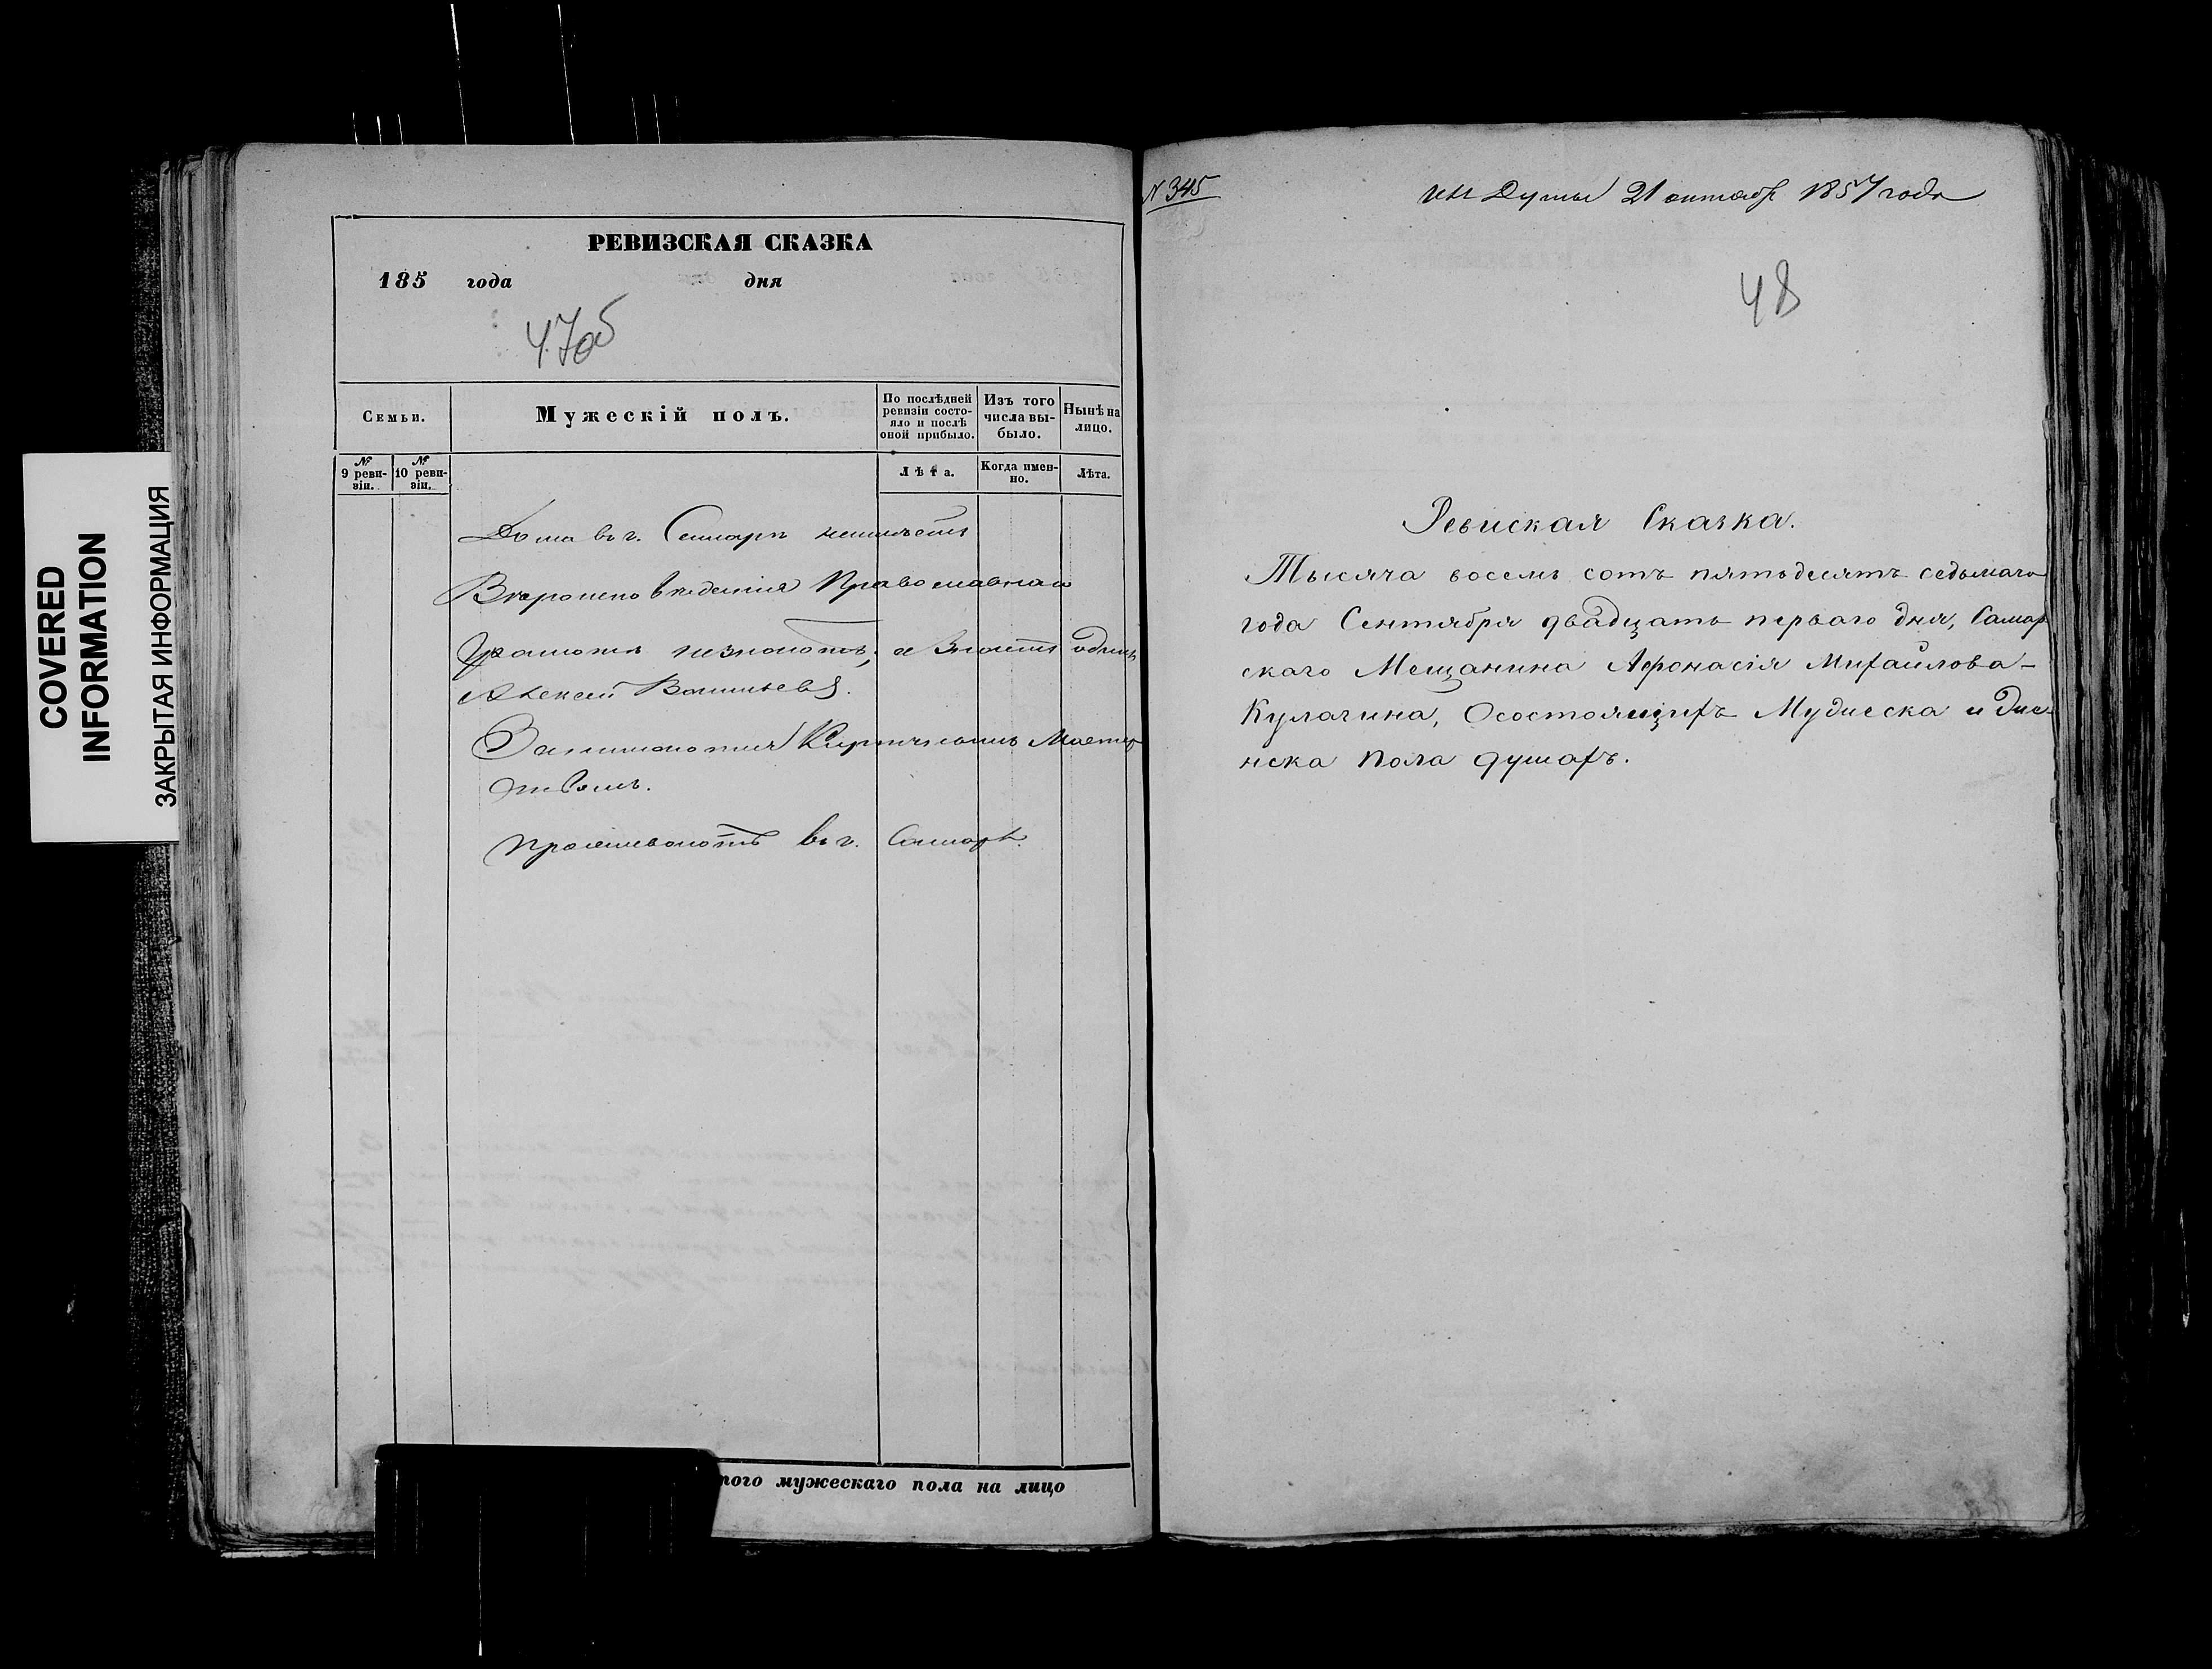 COVERED
INFORMATION
ЗАКРЫТАЯ ИНФОРМАЦИЯ
РЕВИЗСКАЯ СКАЗКА
185 года дня
47об
Семьи.
Мужескій полъ.
По послѣдней ревизіи состояло и послѣ оной прибыло.
Изъ того числа выбыло.
Нынѣ на лицо.
№ 9 ревизіи.
№ 10 ревизіи.
Лѣта.
Когда именно.
Лѣта.
Дома въ г. Самарѣ неимѣетъ
Вѣроисповѣденія Православнаго
Грамотѣ незнаютъ, а Знаетъ одинъ
Алексей Васильевъ.
Занимаются Кирпичнымъ Мастер
ствомъ.
Проживаютъ въ г. Самарѣ.
того мужескаго пола на лицо
N 345
Думы 21 октября 1857 года
48
Ревиская Сказка.
Тысяча восемь сотъ пятьдесятъ седьмаго
года Сентября двадцать перваго дня, Самар
скаго Мещанина Афонасія Михайлова-
Кулагина, Осостоящихъ Мужеска и Же
нска пола душахъ.